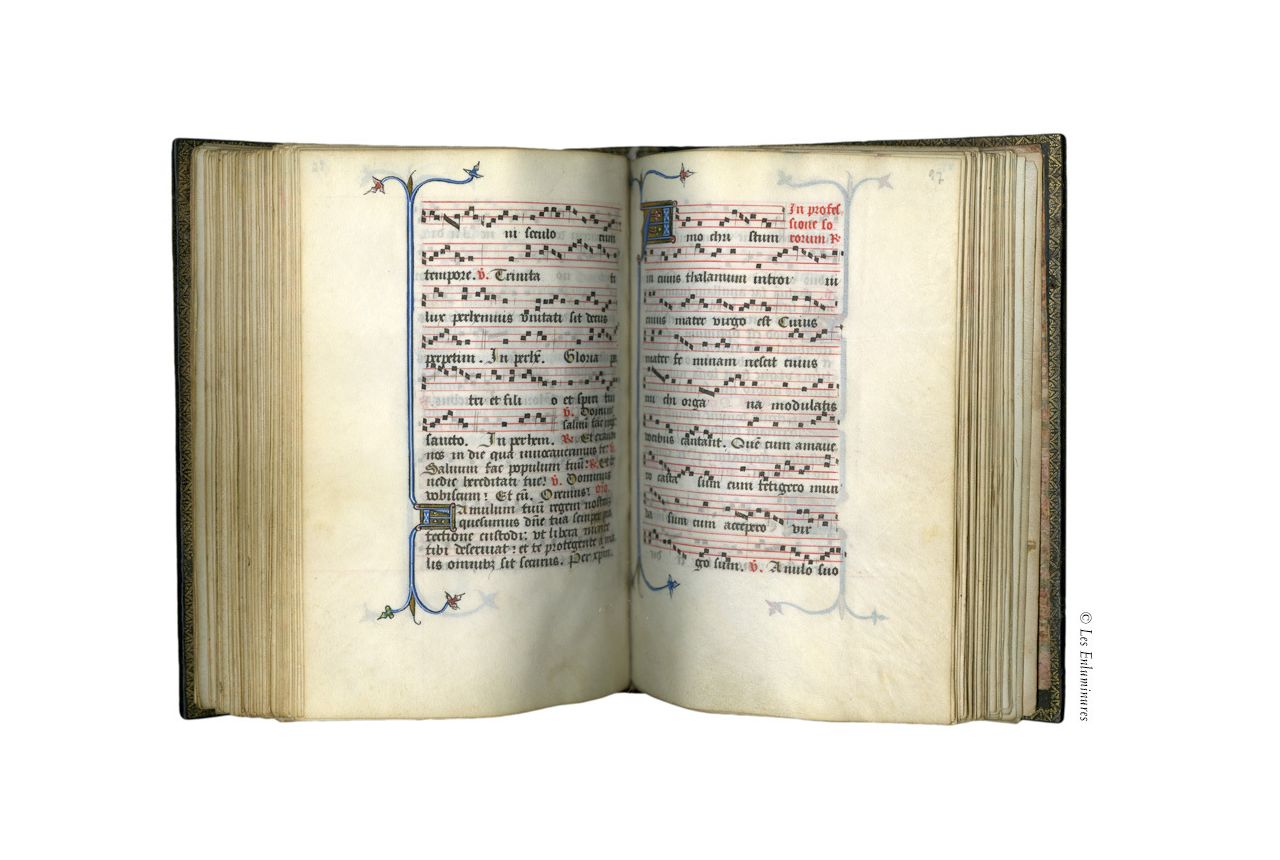 ni seculo cum
tempore. v. Trinita ti
lux perhennis vnitati sit decus
perpetim. In perhē. Gloria pa
tri et fili o et spiri tui
v. Domine
saluū fac rege
sancto. In perhem. R. Et exaudi
nos in die qua inuocauerimus te. v.
Saluum fac populum tuū. R. Et
nedic hereditati tue. v. Dominus
vobiscum. Et cū. Oremus. orō.
Famulum tuū regem nostrū
quesumus dn̄e tua semper pro
tectione custodi: vt libera mente
tibi deseruiat: et te protegente a ma
lis omnibꝫ sit securus. Per xp̄m.
27
In profes
sione so
rorum R.
Amo chri stum
in cuius thalamum introi ui
cuius mater virgo est Cuius
mater fe minam nescit cuius
mi chi orga na modulatis
vocibus cantant. Quē cum amaue
ro casta sum cum tetigero mun
da sum cum accepero vir
go sum. v. Anulo suo
© Les Enluminures